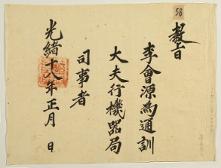 教旨
李會源爲通訓
大夫行機器局
司事者
光緖十八年正月 日